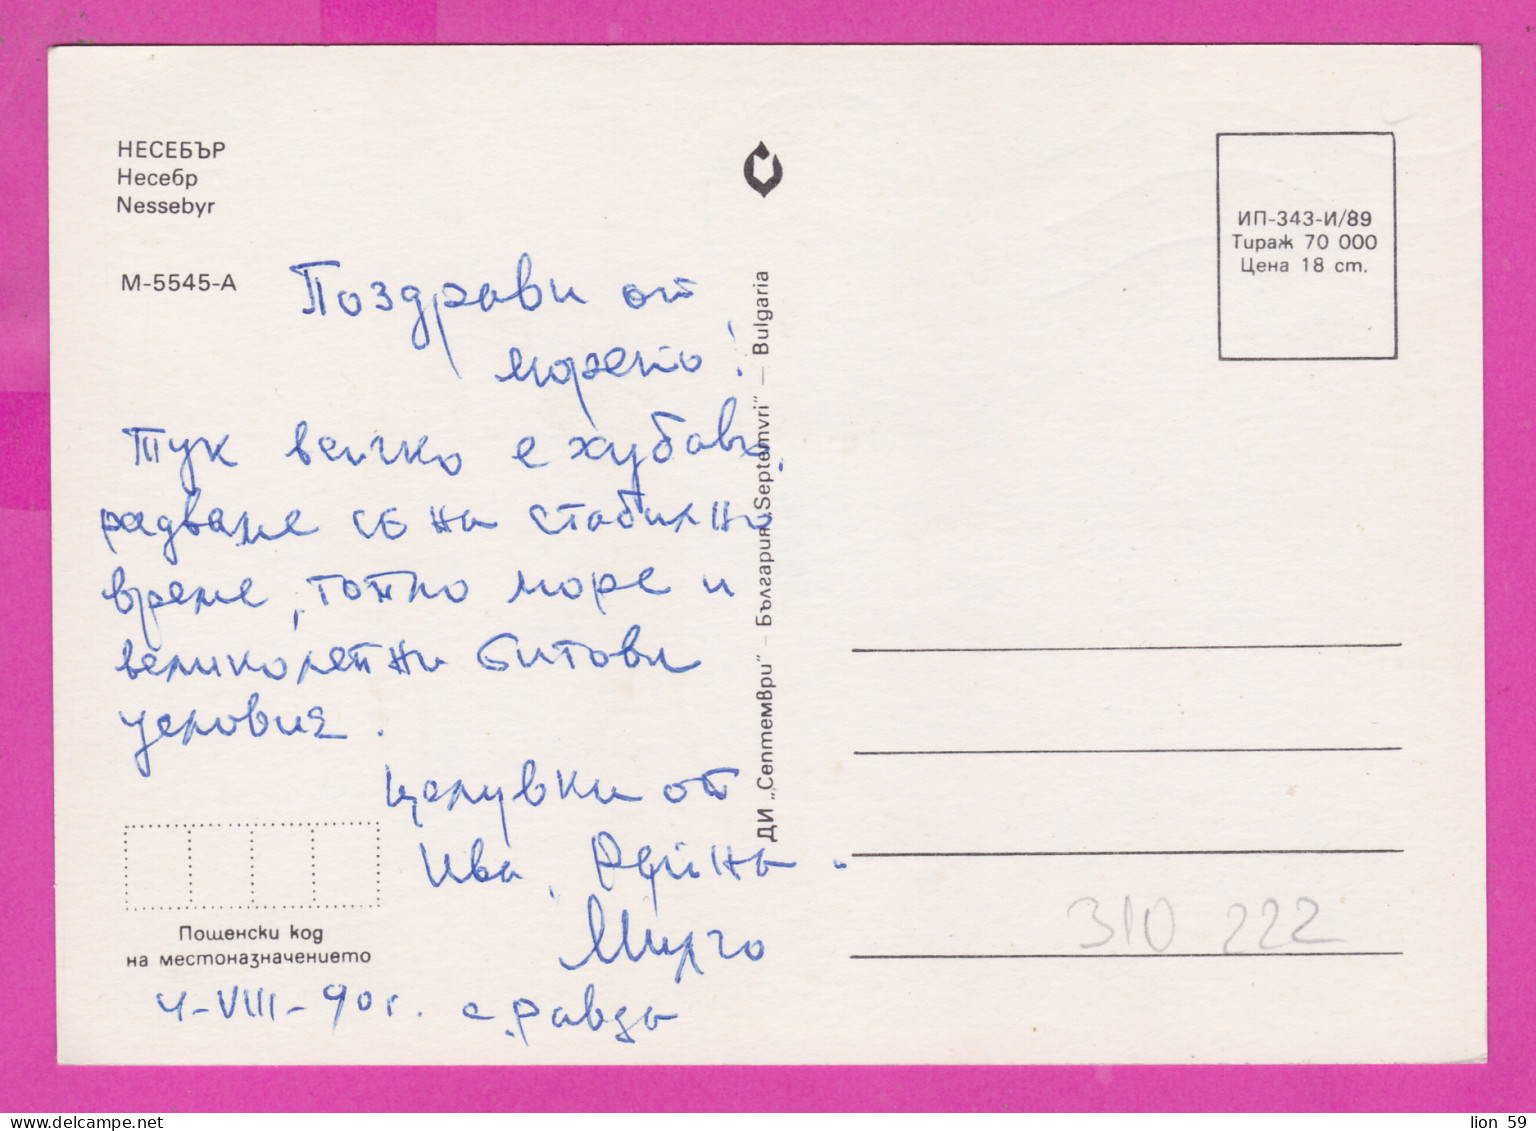 НЕСЕБЪР
Несебр
Nessebyr
М-5545-А
Поздрави от
морето!
Тук всичко е хубаво,
радваме се на стабилно
време, топло море и
великолепни битови
условия.
Целувки от
Ива,
Мирчо
4-VIII-90г. с. Равда
Пощенски код
на местоназначението
ДИ „Септември" – България „Septemvri" — Bulgaria
ИП-343-И/89
Тираж 70 000
Цена 18 ст.
310 222
lion 59